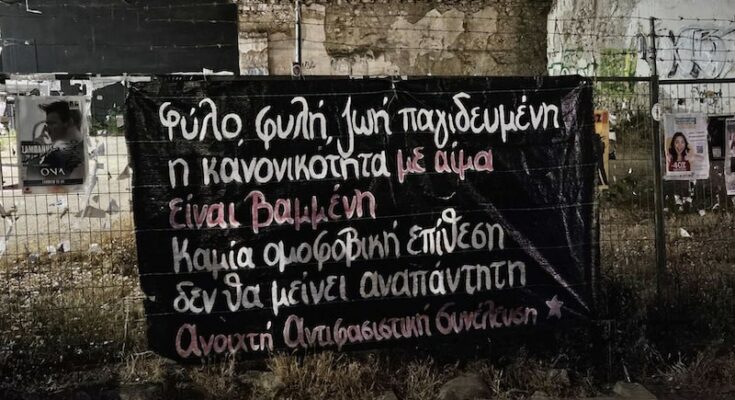 Φύλο, φυλή, ζωή παγιδευμένη
η κανονικότητα με αίμα
είναι βαμμένη
Καμία ομοφοβική επίθεση
δεν θα μείνει αναπάντητη
Ανοιχτή Αντιφασιστική Συνέλευση